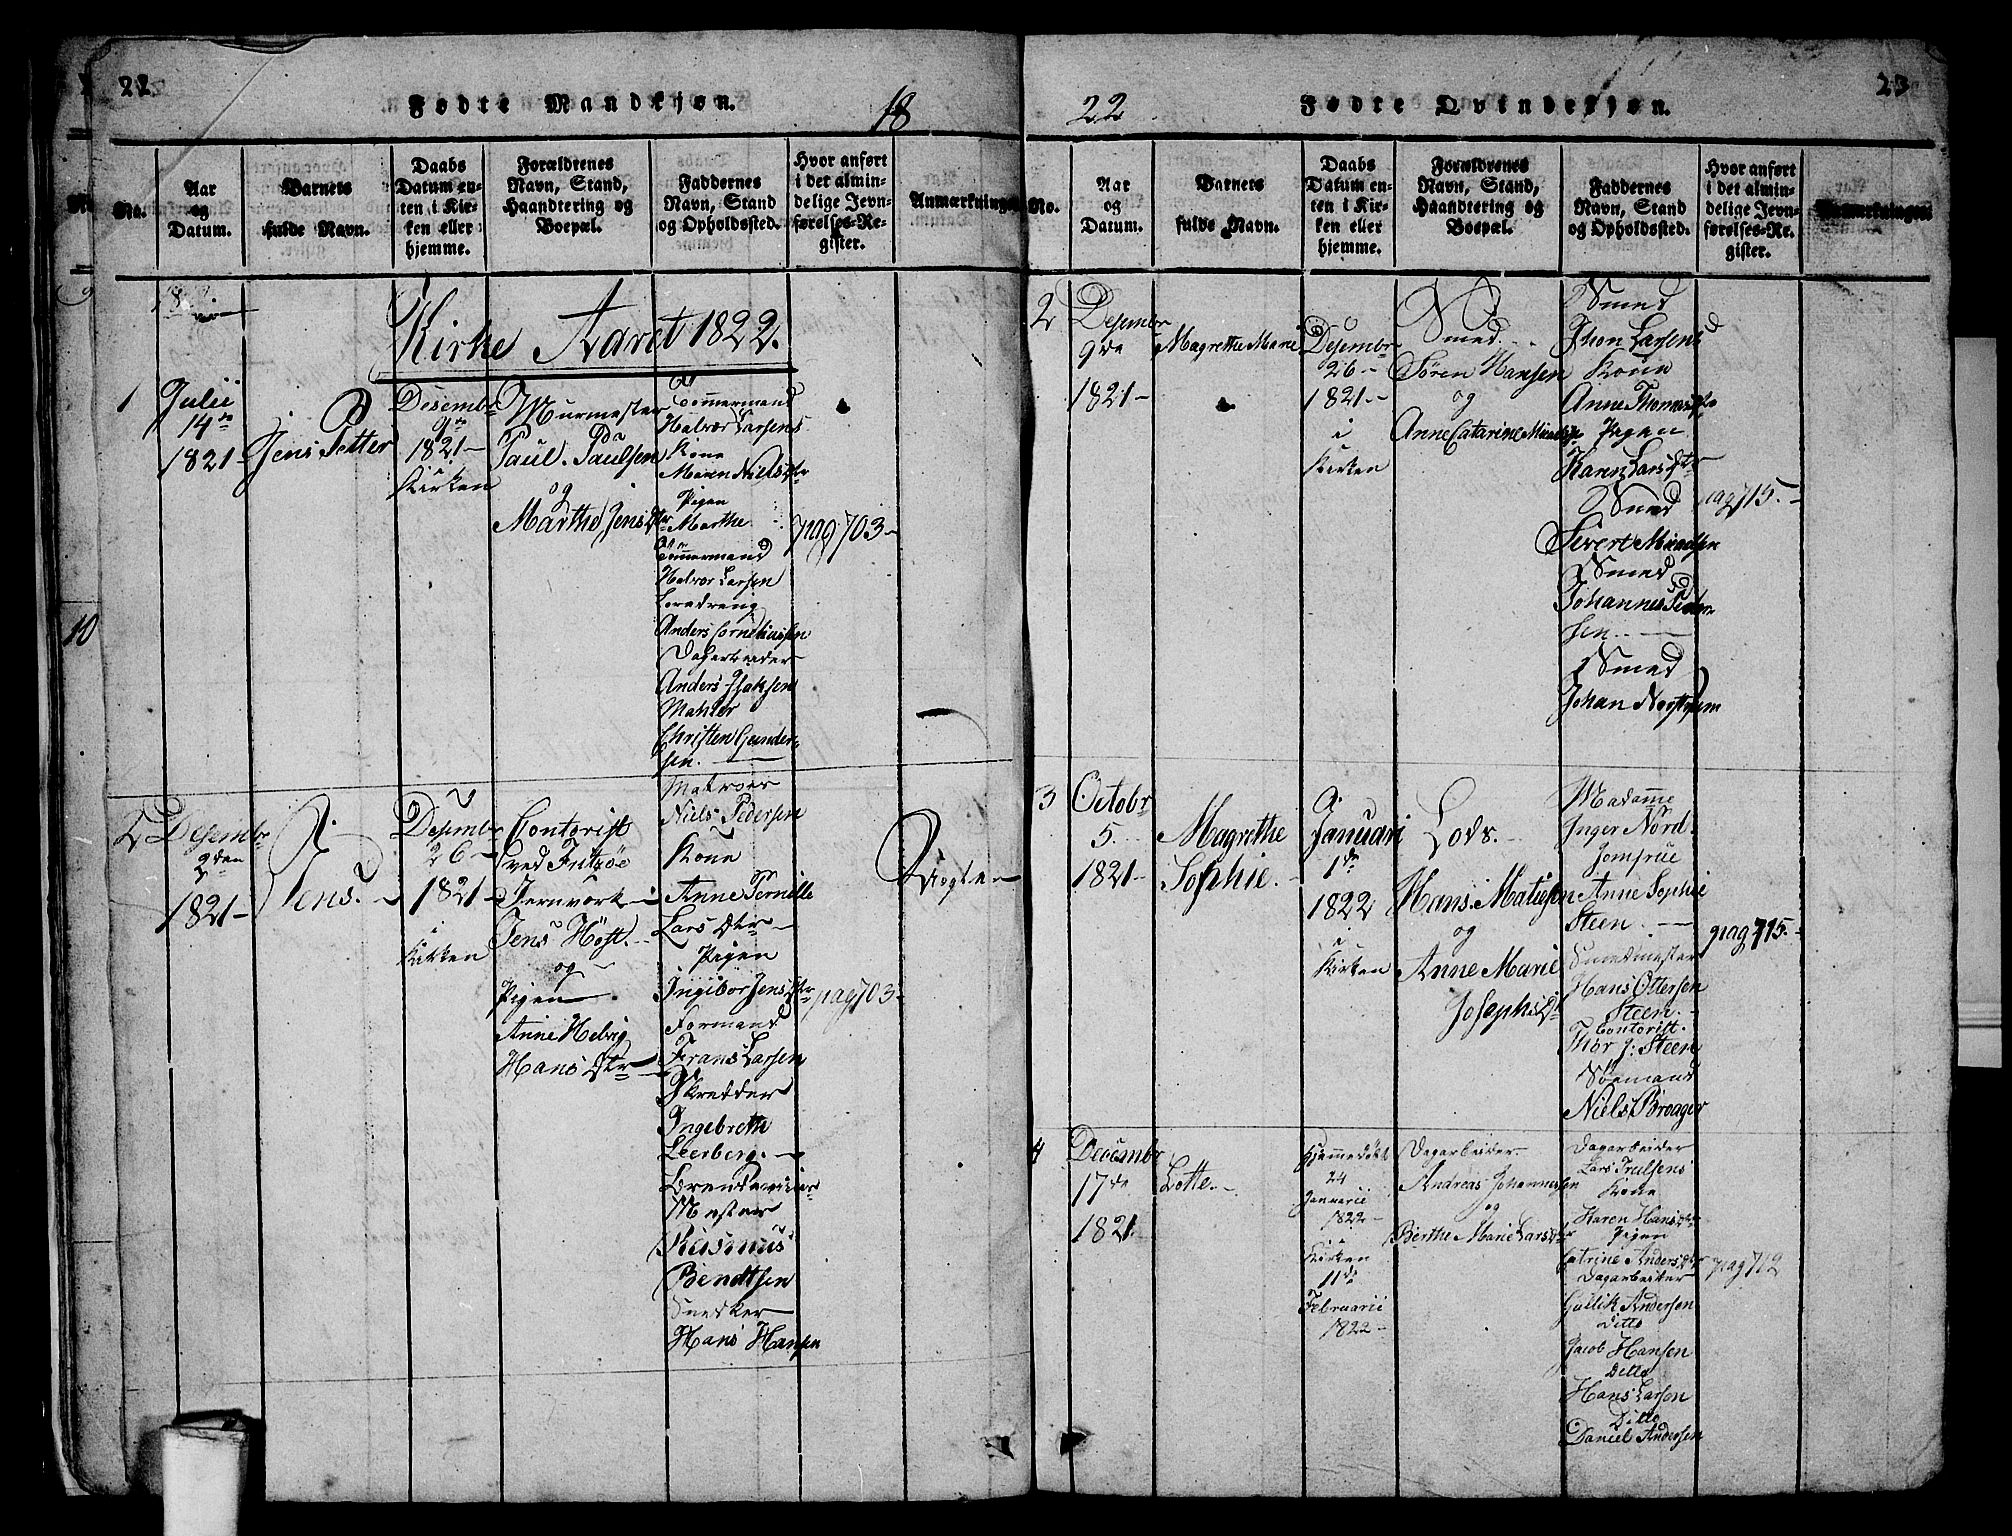 22
Fødte Mandkjøn.
18
No.
Aar
og
Datum.
Barnets
fulde Navn.
Daabs
Datum en-
ten i Kir-
ken eller
hjemme.
Forældrenes
Navn, Stand,
Haandtering og
Boepæl.
Faddernes
Navn, Stand
og Opholdssted.
Hvor anført
i det almin-
delige Jevn-
førelses-Re-
gister.
Anmærkninger
Kirke Aaret 1822.
1
Julii
14de
1821-
Jens Petter
Desembr
9de
1821-
Kirken
Murmester
Paul Paulsen
og
Marthe Jens Dtr
Tømmermand
Halvor Larsens
Kone
Maren Niels Dtr
Pigen
Marthe
Tømmermand
Halvor Larsen
Loredreng
Anders Corneliussen
Dagarbeider
Anders Isaksen
Mahler
Christen Gunder-
sen.
pag 703-
2
Desembr
9den
1821-
Jens.
Desembr
26-
1821-
i
Kirken
Contorist
ved Fritzøe
Jernværk
Jens Høst.
og
Pigen
Anne Helvig
Hans Dtr
Matroes
Niels Pedersen
Kone
Anne Pernille
Lars Dtr
Pigen
Ingibor Jens Dtr
Formand
Frans Larsen
Skredder
Ingebreth
Leerberg.
Mester
Rasmus
Bendtsen
Snedker
Hans Hansen
pag 703-
Uægte
23
22
Fødte Qvindekjøn.
No.
Aar
og
Datum.
Barnets
fulde Navn.
Daabs
Datum en-
ten i Kir-
ken eller
hjemme.
Forældrenes
Navn, Stand,
Haandtering og
Boepæl.
Faddernes
Navn, Stand
og Opholdssted.
Hvor anført
i det almin-
delige Jevn-
førelses-Re-
gister.
Anmærkninger
2
Desembr
9de
1821-
Magrethe Marie
Desembr
26-
1821-
i
Kirken
Smed
Søren Hansen
og
Anne Catarine
Smed
Thon Larsens
Kone
Anne Thomas Dtr
Pigen
Karen Lars Dtr
Smed
Sivert
Smed
Johannes Peder-
sen.
Smed
Johan
pag 715.-
3
Octobr
5.
1821-
Magrethe
Sophie.
Januari
1de
1822
i
Kirken
Lods.
Hans Matieson
og
Anne Marie
Josephs Dtr
Madamme
Inger Nord.
Jomfrue
Anne Sophie
Steen.
Smedmester
Hans Ottersen
Steen.
Contorist.
Thor J: Steen
Sømand
Niels Broager
pag 715.-
4
Decembr
17de
1821.
Lotte.
Hjemmedøbt
24
Januarii
1822-
i
Kirken
11de
Februarii
1822-
Dagarbeider
Andreas Johannessen
og
Berthe Marie Lars Dtr
Dagarbeider
Lars Trulsens
Kone
Karen Hans Dtr
Pigen
Catrine Anders Dtr
Dagarbeider
Gullik Andersen
Ditto
Jacob Hansen
Ditto
Hans Larson
Ditto
Daniel Andersen
pag 712